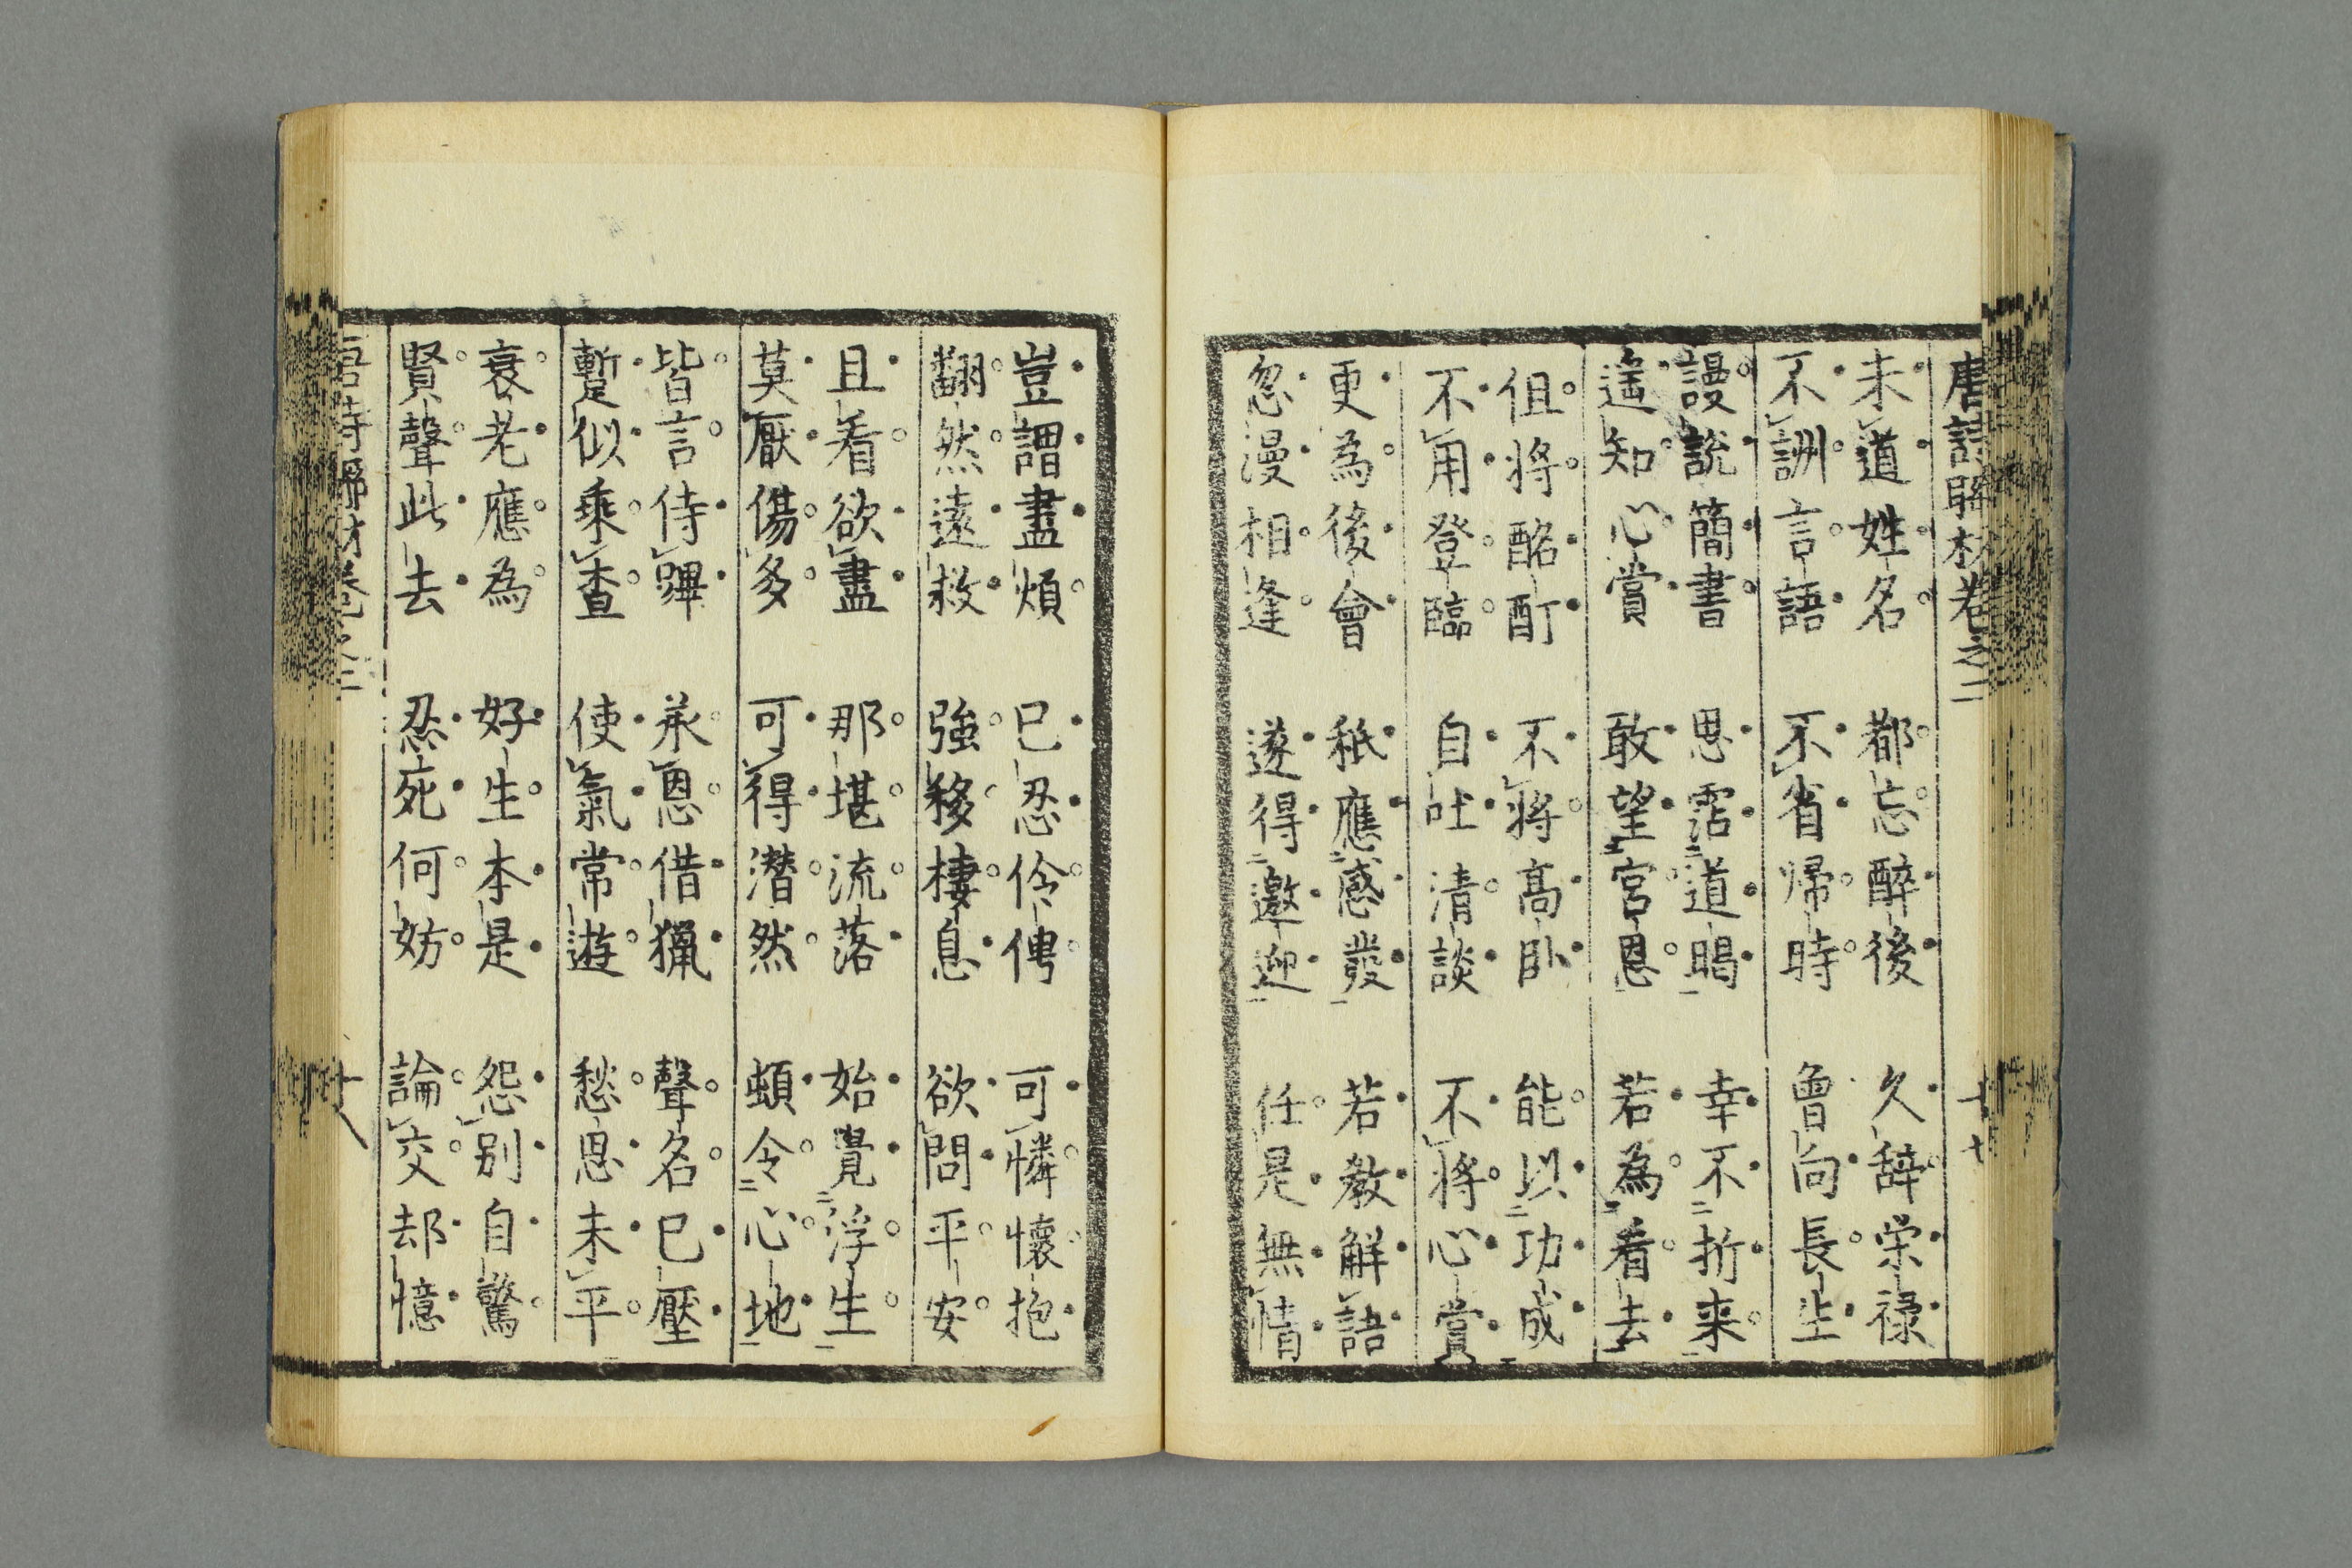 唐詩聯材卷之二 十七
未道姓名 都忘醉後 久辞栄禄
不詶言語 不省帰時 曾向長生
謾說簡書 思霑道暍 幸不折来
遥知心賞 敢望宮恩 若為看去
但将酩酊 不将高卧 能以功成
不用登臨 自吐清談 不将心賞
更為後會 秖應感發 若教解語
忽漫相逢 遂得邀迎 任是無情
豈謂盡煩 已忍伶俜 可憐懷抱
翻然遠救 強移棲息 欲問平安
且看欲盡 那堪流落 始覺浮生
莫厭傷多 可得潜然 頓令心地
皆言侍蹕 承恩借獵 聲名已壓
蹔似乗査 使氣常遊 愁思未平
衰老應為 好生本是 怨别自驚
賢聲此去 忍死何妨 論交却憶
十八